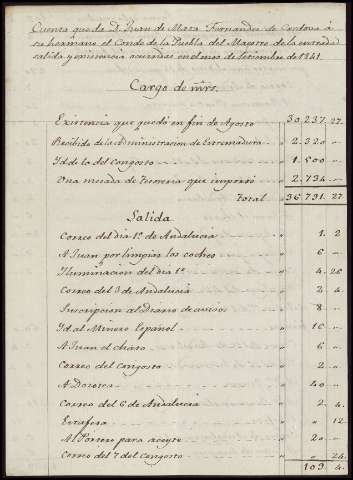 Cuenta que da D. Juan de Mata Fernandez de Cordova á
su hermano el Conde de la Puebla del Maestre de la entrada
salida y existencia ocurridas en el mes de Setiembre de 1841.
Cargo de mrs.
Existencia que quedó en fin de Agosto 30,237. 27.
Recibido de la Administracion de Estremadura 2,320 "
Id. de la del Congosto " 1,500 "
Una mesada de Tesoreria que importó " 2,734 "
Total " 36,791. 27
Salida
Correo del dia 1º de Andalucia " 1. 2
A Juan por limpiar los coches " 6
Iluminacion del dia 1º " 4. 26
Correo del 3 de Andalucia " 2. 4
Inscripcion al Diario de avisos " 8
Id. al Minero Español " 16
A Juan el chico " 6
Correo del Congosto " 2
A Dorotea " 40
Correo del 6 de Andalucia " 2. 4.
Estafera " " 12
Al Portero para aceyte " 20
Correo del 7 del Congosto " " 24
109 4.